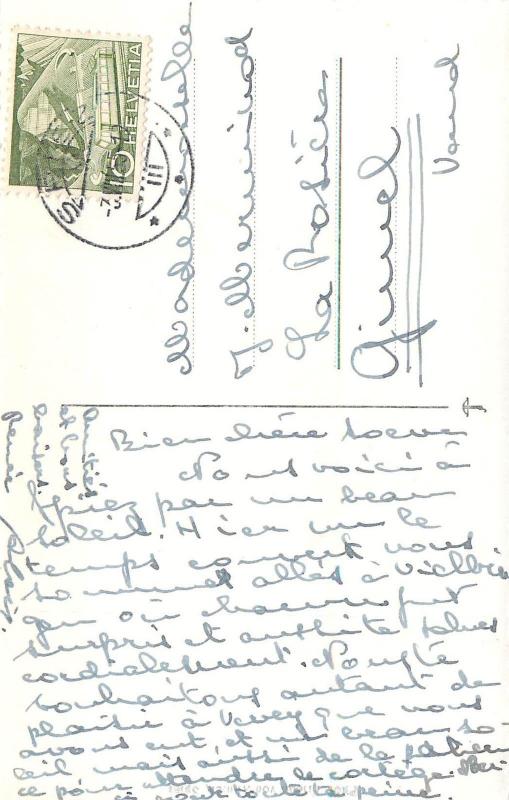 HELVETIA
10
Mademoiselle
J. Merminod
La Rosière
Gimel
Vaud
Bien chère soeur
Nous voici à
Spiez par un beau
soleil. Hier vu le
temps couvert nous
sommes allés à
où fut
surpris et aussitôt
cordialement. Nous te
souhaitons autant de
plaisir à Vevey que nous
avons eut et un beau so-
leil mais aussi de la patien-
ce pour attendre le cortège.
la peine.
Amitiés
et bons
baisers.
Renée